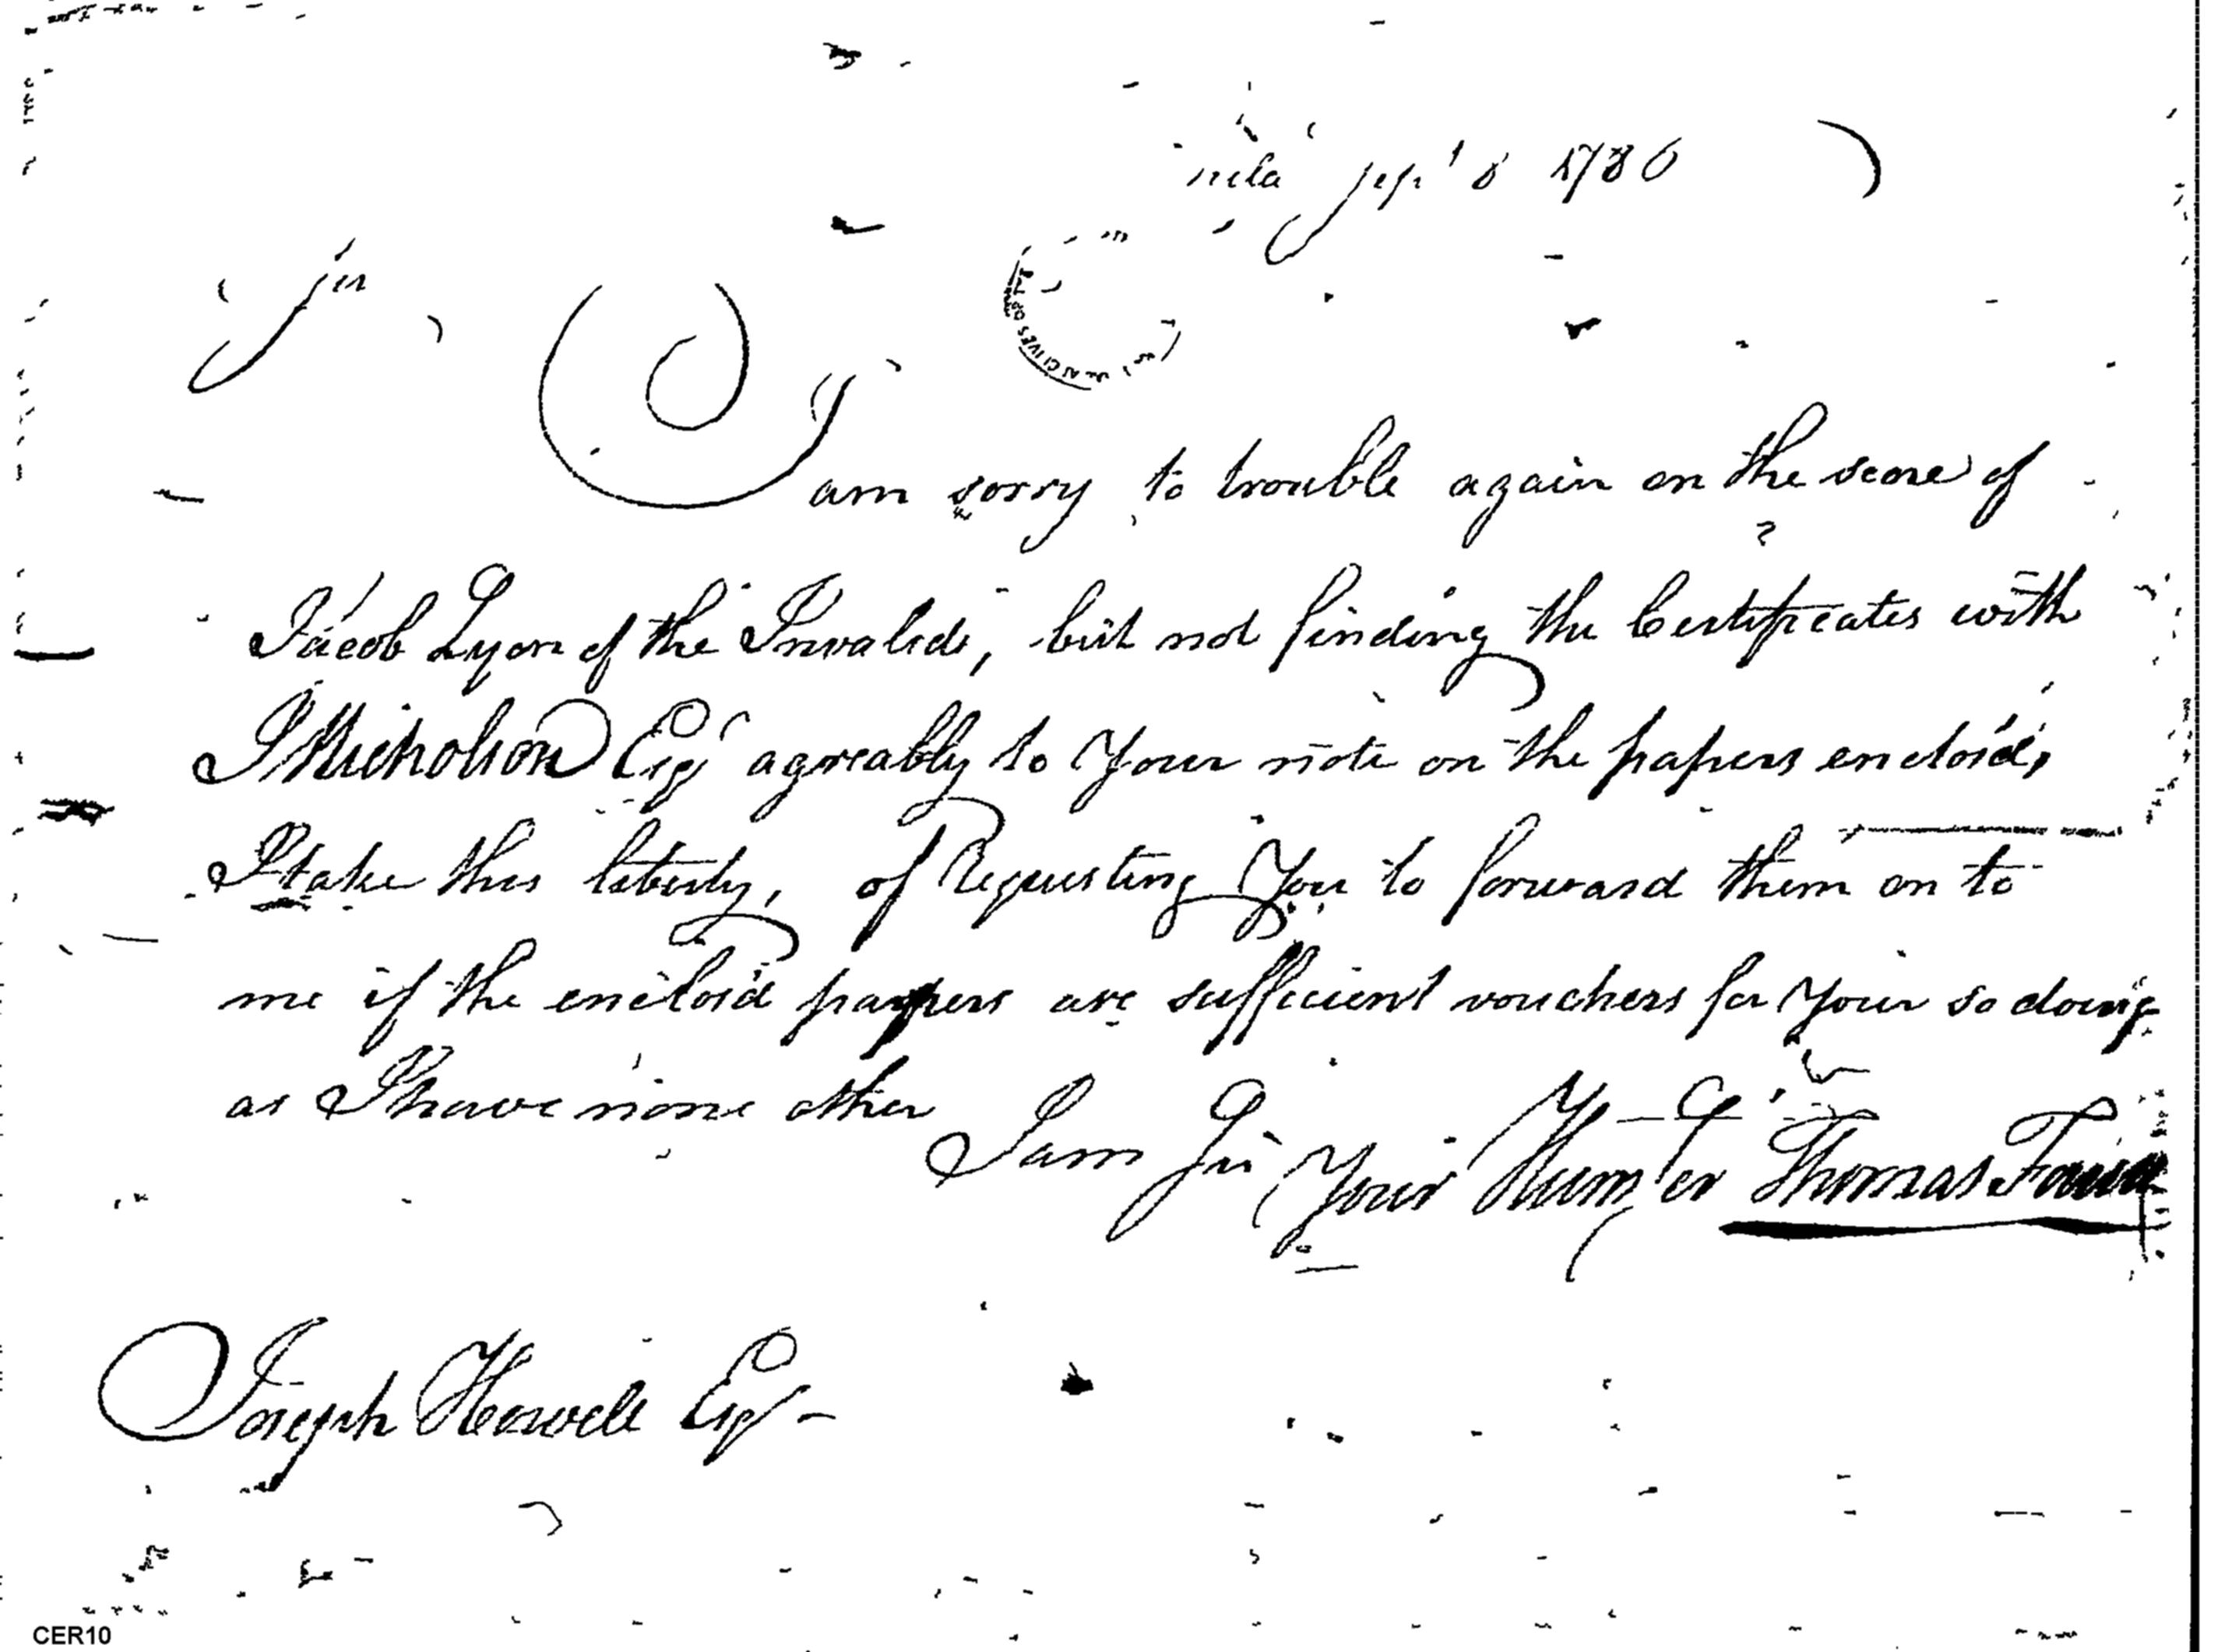 Sepr 8 1786
Sir
I am sorry to trouble again on the score of
Jacob Lyon of the Invalids, but not finding the Certificates with
J Nicholson Esqr agreably to Your note on the papers enclos'd,
I take this liberty, of Requesting You to forward them on to
me if the enclos'd papers are sufficient vouchers for Your so doing
as I have none other
I am Sir Your Humr Thomas
Joseph Howell Esqr
CER10